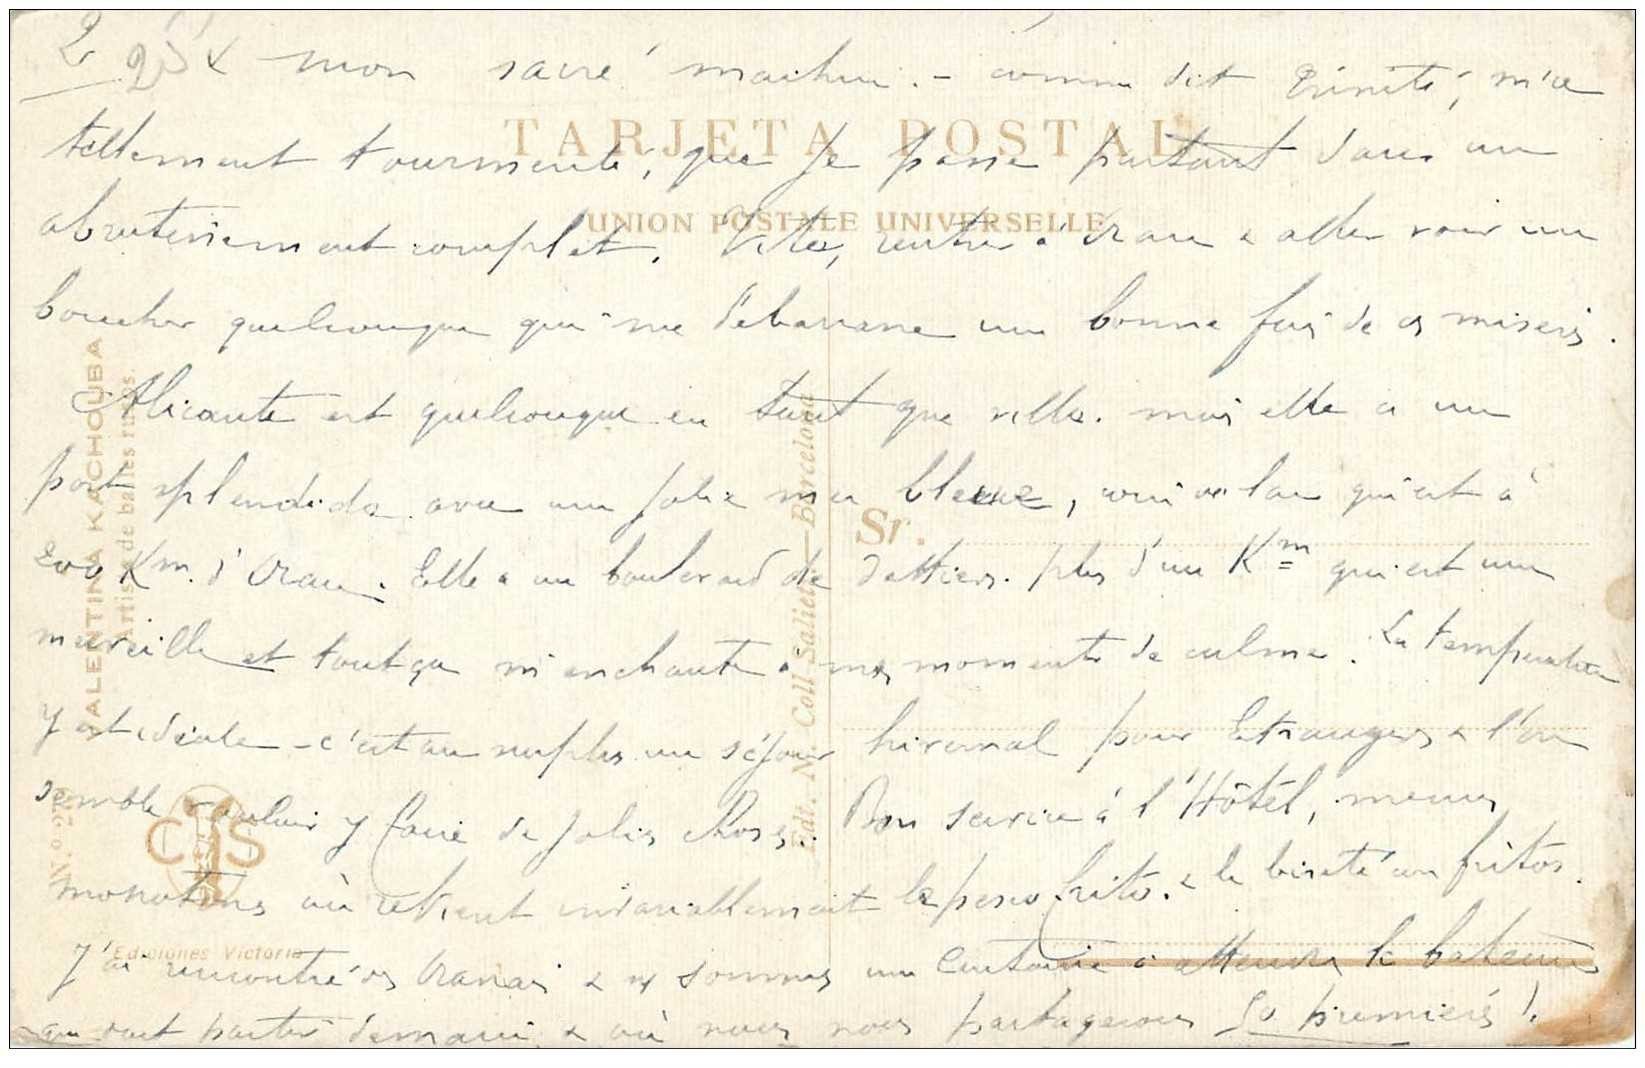 2
mon sacré machin. - comme dit Trinité, m'a
tellement tourmenté, que je passe partout dans un
abrutissement complet. Vite, rentrer à Oran & aller voir un
boucher quelconque qui me débarrasse une bonne fois de ces misères.
Alicante est quelconque en tant que ville. mais elle a un
port splendide avec une jolie mer bleue, qui est à
200 Km. d'Oran. Elle a un boulevard de dattiers. plus d'un Km qui est une
merveille et tout ça m'enchante à mes moments de calme. La température
y est idéale - c'est au surplus un séjour hivernal pour Etrangers & l'on
semble vouloir y faire de jolies choses. Bon service à l'Hôtel, menus
monotones où revient invariablement le pesco frito. &
J'ai rencontré des Oranais & ns sommes une centaine à attendre le bateau
qui doit partir demain & où nous nous partagerons 50 premières !.
TARJETA POSTAL
UNION POSTALE UNIVERSELLE
Sr.
VALENTINA KACHOUBA
Artista de bailes rusos.
Edt. M. Coll Salieti - Barcelona
C S
Ediciones Victoria